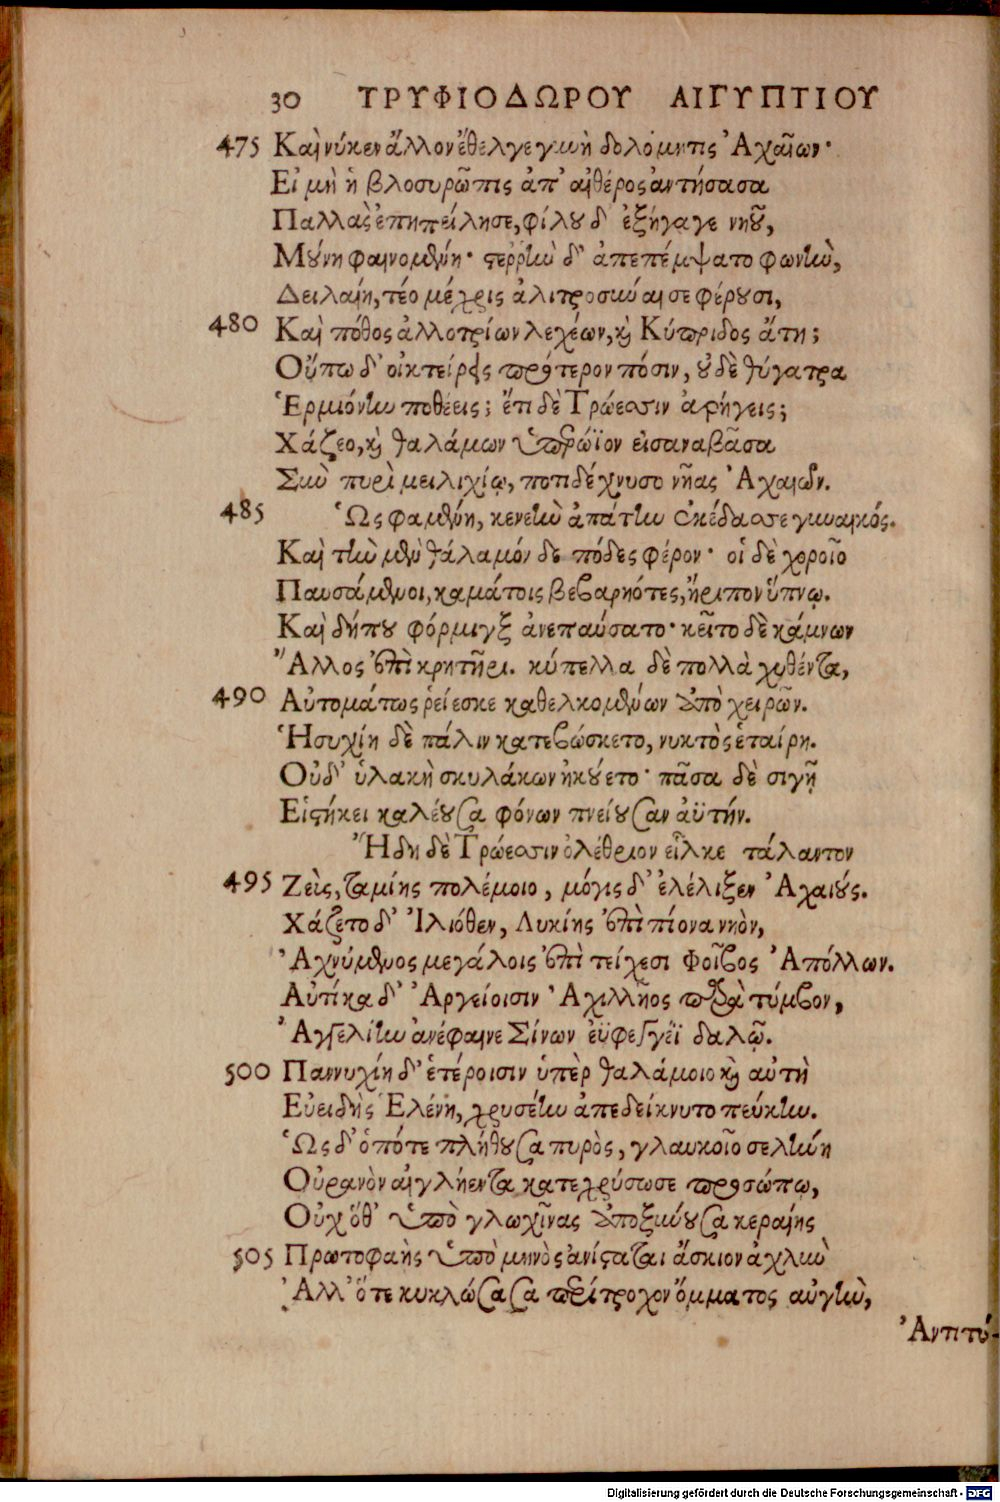 30 ΤΡΥΦΙΟΔΩΡΟΥ ΑΙΓΥΠΤΙΟΥ
475 Καὶ νύκεν ἄλλον ἔθελγε γυνὴ δολόμητις Ἀχαιῶν·
Εἰ μὴ ἡ βλοσυρῶπις ἀπ' αἰθέρος ἀντήσασα
Παλλὰς ἐπηπείλησε, φίλου δ' ἐξήγαγε νηοῦ,
Μούνη φαινομένη· στερρὴν δ' ἀπεπέμψατο φωνὴν,
Δειλαίη, τέο μέχρις ἀλιτροσύναι σε φέρουσι,
480 Καὶ πόθος ἀλλοτρίων λεχέων, καὶ Κύπριδος ἄτη;
Οὔπω δ' οἰκτείρεις πρότερον πόσιν, οὐδὲ θύγατρα
Ἑρμιόνην ποθέεις; ἔτι δὲ Τρώεσσιν ἀρήγεις;
Χάζεο, καὶ θαλάμων ὑπερώϊον εἰσαναβᾶσα
Σὺν πυρὶ μειλιχίῳ, ποτιδέχνυσο νῆας Ἀχαιῶν.
485 Ὣς φαμένη, κενεὴν ἀπάτην ἐκέδασσε γυναικός.
Καὶ τὴν μὲν θάλαμόν δε πόδες φέρον· οἱ δὲ χοροῖο
Παυσάμενοι, καμάτοις βεβαρηότες, ἤριπον ὕπνῳ.
Καὶ δήπου φόρμιγξ ἀνεπαύσατο· κεῖτο δὲ κάμνων
Ἄλλος ἐπὶ κρητῆρι. κύπελλα δὲ πολλὰ χυθέντα,
490 Αὐτομάτως ῥείεσκε καθελκομένων ἀπὸ χειρῶν.
Ἡσυχίη δὲ πάλιν κατεβώσκετο, νυκτὸς ἑταίρη.
Οὐδ' ὑλακὴ σκυλάκων ἠκούετο· πᾶσα δὲ σιγῇ
Εἱστήκει καλέουσα φόνων πνείουσαν ἀϋτήν.
Ἤδη δὲ Τρώεσσιν ὀλέθριον εἷλκε τάλαντον
495 Ζεὺς, ταμίης πολέμοιο, μόγις δ' ἐλέλιξεν Ἀχαιούς.
Χάζετο δ' Ἰλιόθεν, Λυκίης ἐπὶ πίονα νηὸν,
Ἀχνύμενος μεγάλοις ἐπὶ τείχεσι Φοῖβος Ἀπόλλων.
Αὐτίκα δ' Ἀργείοισιν Ἀχιλλῆος παρὰ τύμβον,
Ἀγγελίην ἀνέφαινε Σίνων εὐφεγγέϊ δαλῷ.
500 Παννυχίη δ' ἑτέροισιν ὑπὲρ θαλάμοιο καὶ αὐτὴ
Εὐειδὴς Ἑλένη, χρυσέην ἀπεδείκνυτο πεύκην.
Ὡς δ' ὁπότε πλήθουσα πυρὸς, γλαυκοῖο σελήνη
Οὐρανὸν αἰγλήεντα κατεχρύσωσε προσώπῳ,
Οὐχ ὅθ' ὑπὸ γλωχῖνας ἀποξύνουσα κεραίης
505 Πρωτοφαὴς ὑπὸ μηνὸς ἀνίσταται ἄσκιον ἀχλὺν
Ἀλλ' ὅτε κυκλώσασα περίτροχον ὄμματος αὐγὴν,
Ἀντιτύ-
Digitalisierung gefördert durch die Deutsche Forschungsgemeinschaft - DFG